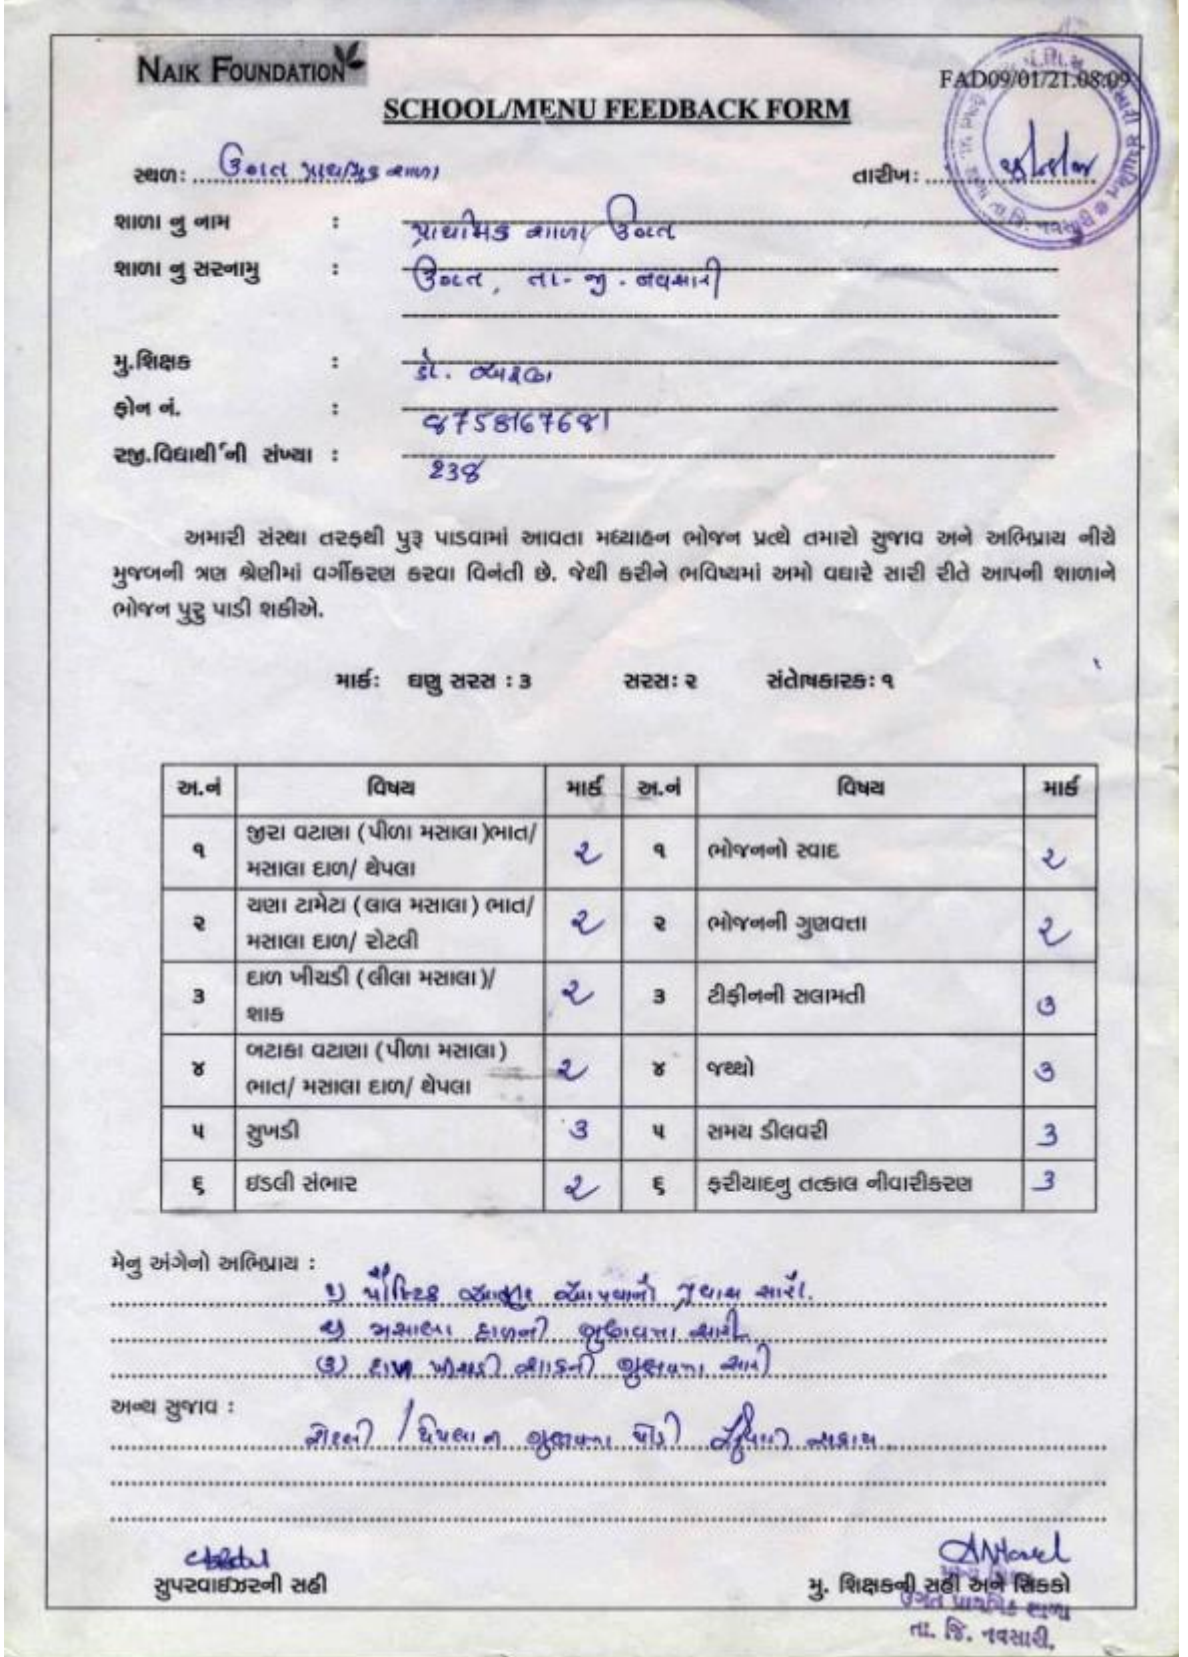 NAIK FOUNDATION
FAD09/01/21.08:09
SCHOOL/MENU FEEDBACK FORM
સ્થળ: ઉગત પ્રાથમિક શાળા
તારીખ:
શાળા નુ નામ : પ્રાથમિક શાળા ઉગત
શાળા નુ સરનામુ : ઉગત, તા-જી. નવસારી
મુ.શિક્ષક : ડૉ.
ફોન નં. : ૭758167681
રજી.વિદ્યાર્થીની સંખ્યા :
અમારી સંસ્થા તરફથી પુરૂ પાડવામાં આવતા મધ્યાહન ભોજન પ્રત્યે તમારો સુજાવ અને અભિપ્રાય નીચે
મુજબની ત્રણ શ્રેણીમાં વર્ગીકરણ કરવા વિનંતી છે. જેથી કરીને ભવિષ્યમાં અમો વધારે સારી રીતે આપની શાળાને
ભોજન પુરુ પાડી શકીએ.
માર્ક: ઘણુ સરસ : ૩ સરસ: ૨ સંતોષકારક: ૧
અ.નં વિષય માર્ક અ.નં વિષય માર્ક
૧ જીરા વટાણા (પીળા મસાલા)ભાત/ મસાલા દાળ/ થેપલા ૨ ૧ ભોજનનો સ્વાદ ૨
૨ ચણા ટામેટા (લાલ મસાલા) ભાત/ મસાલા દાળ/ રોટલી ૨ ૨ ભોજનની ગુણવત્તા ૨
૩ દાળ ખીચડી (લીલા મસાલા)/ શાક ૨ ૩ ટીફીનની સલામતી ૩
૪ બટાકા વટાણા (પીળા મસાલા) ભાત/ મસાલા દાળ/ થેપલા ૨ ૪ જથ્થો ૩
૫ સુખડી ૩ ૫ સમય ડીલવરી ૩
૬ ઇડલી સંભાર ૨ ૬ ફરીયાદનુ તત્કાલ નીવારીકરણ ૩
મેનુ અંગેનો અભિપ્રાય :
૧) પૌષ્ટિક આહાર આપવાનો પ્રયાસ સારો.
૨) મસાલા દાળની ગુણવત્તા સારી
(૩) દાળ ખીચડી શાકની ગુણવત્તા સારી
અન્ય સુજાવ :
રોટલી / થેપલાન ગુણવત્તા થોડી સુધારી શકાય
સુપરવાઇઝરની સહી
મુ. શિક્ષકની સહી અને સિક્કો
ઉગત પ્રાથમિક શાળા
તા. જિ. નવસારી.